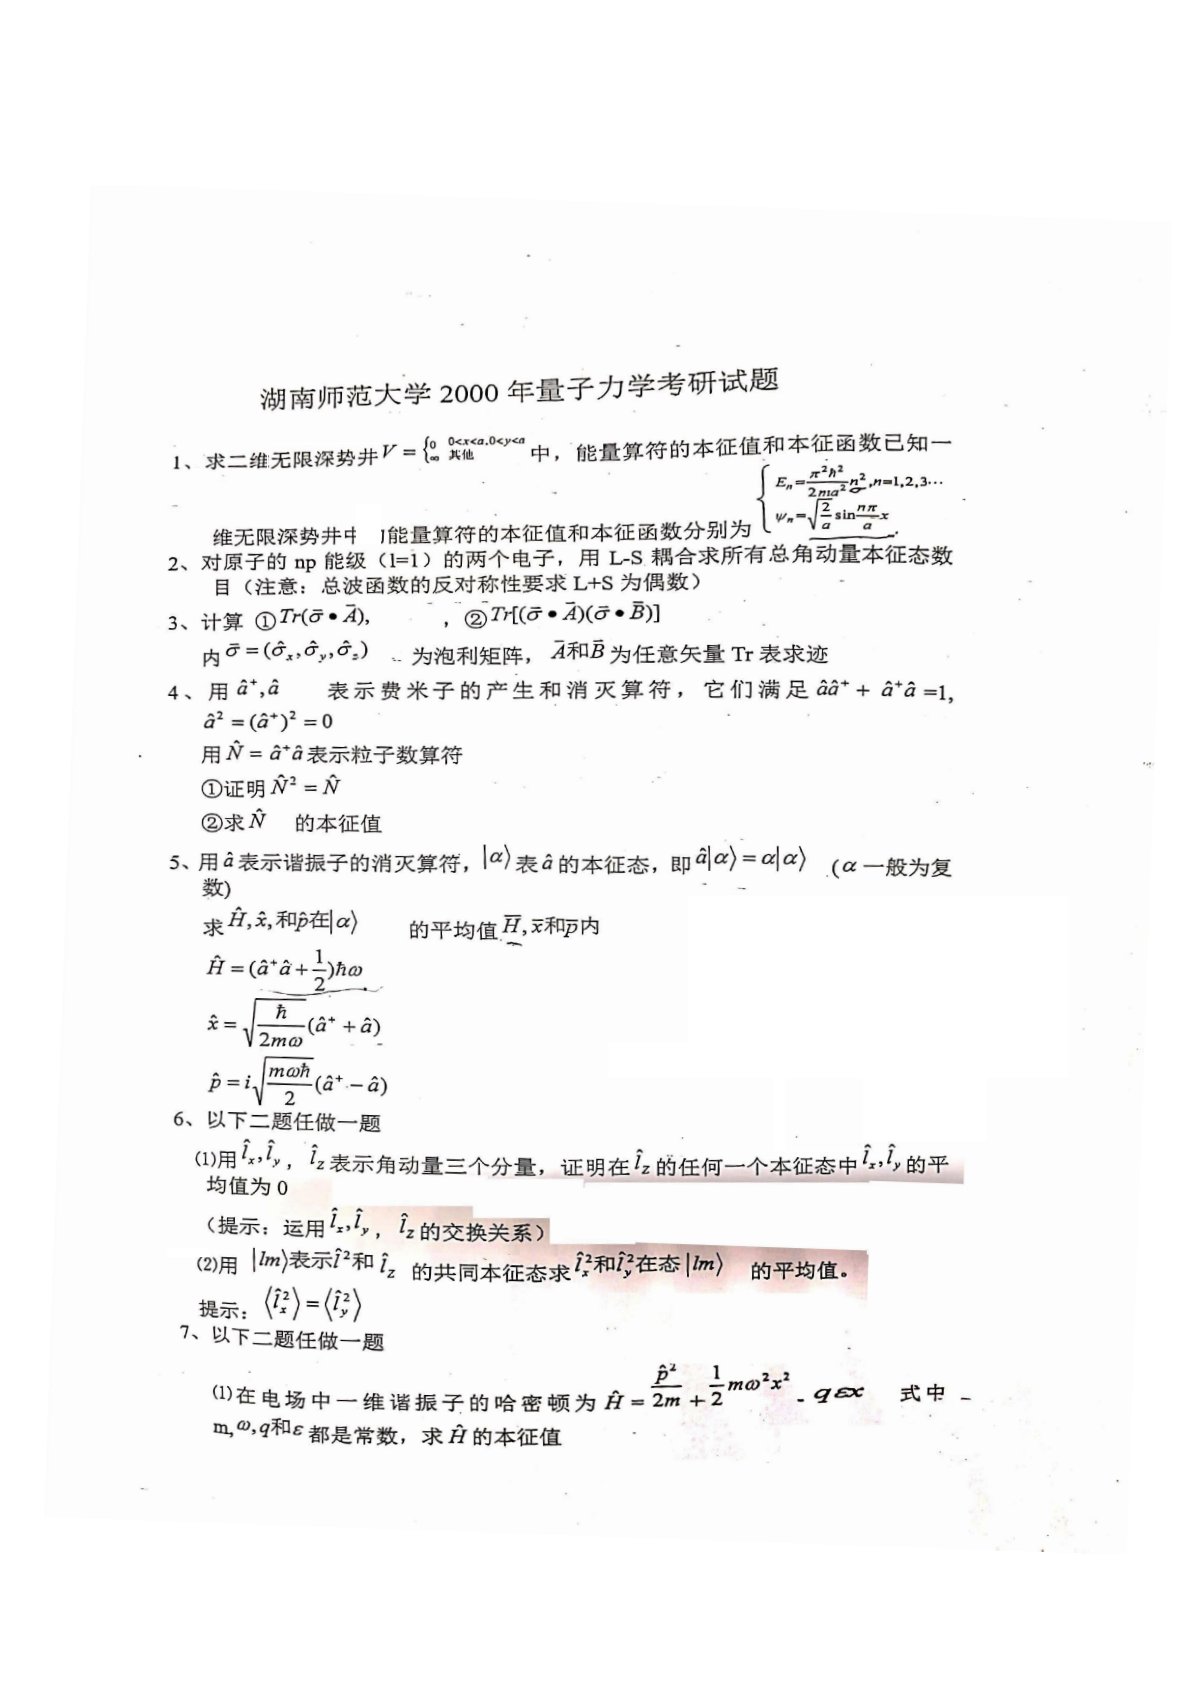 湖南师范大学 2000 年量子力学考研试题
1、求二维无限深势井 V = {0 0<x<a,0<y<a ∞ 其他 中，能量算符的本征值和本征函数已知一
维无限深势井中 能量算符的本征值和本征函数分别为 { Eₙ=π²ħ²/2ma² n²,n=1,2,3··· ψₙ=√(2/a) sin nπ/a x .
2、对原子的 np 能级（l=1）的两个电子，用 L-S 耦合求所有总角动量本征态数
目（注意：总波函数的反对称性要求 L+S 为偶数）
3、计算 ①Tr(σ̄•Ā), ，②Tr[(σ̄•Ā)(σ̄•B̄)]
内 σ̄=(σ̂ₓ,σ̂ᵧ,σ̂_z) 为泡利矩阵， Ā和B̄ 为任意矢量 Tr 表求迹
4、用 â⁺,â 表示费米子的产生和消灭算符，它们满足 ââ⁺ + â⁺â =1,
â² = (â⁺)² = 0
用 N̂ = â⁺â 表示粒子数算符
①证明 N̂² = N̂
②求 N̂ 的本征值
5、用 â 表示谐振子的消灭算符，|α⟩ 表 â 的本征态，即 â|α⟩ = α|α⟩ (α 一般为复
数)
求 Ĥ,x̂,和p̂在|α⟩ 的平均值 H̄,x̄和p̄内
Ĥ = (â⁺â + 1/2)ħω
x̂ = √(ħ/2mω) (â⁺ + â)
p̂ = i√(mωħ/2) (â⁺ - â)
6、以下二题任做一题
⑴用 l̂ₓ,l̂ᵧ， l̂_z 表示角动量三个分量，证明在 l̂_z 的任何一个本征态中 l̂ₓ,l̂ᵧ 的平
均值为 0
（提示：运用 l̂ₓ,l̂ᵧ， l̂_z 的交换关系）
⑵用 |lm⟩表示l̂²和 l̂_z 的共同本征态求 l̂ₓ²和l̂ᵧ²在态|lm⟩ 的平均值。
提示: ⟨l̂ₓ²⟩=⟨l̂ᵧ²⟩
7、以下二题任做一题
⑴在电场中一维谐振子的哈密顿为 Ĥ = p̂²/2m + 1/2 mω²x² - qεx 式中
m,ω,q和ε 都是常数，求 Ĥ 的本征值